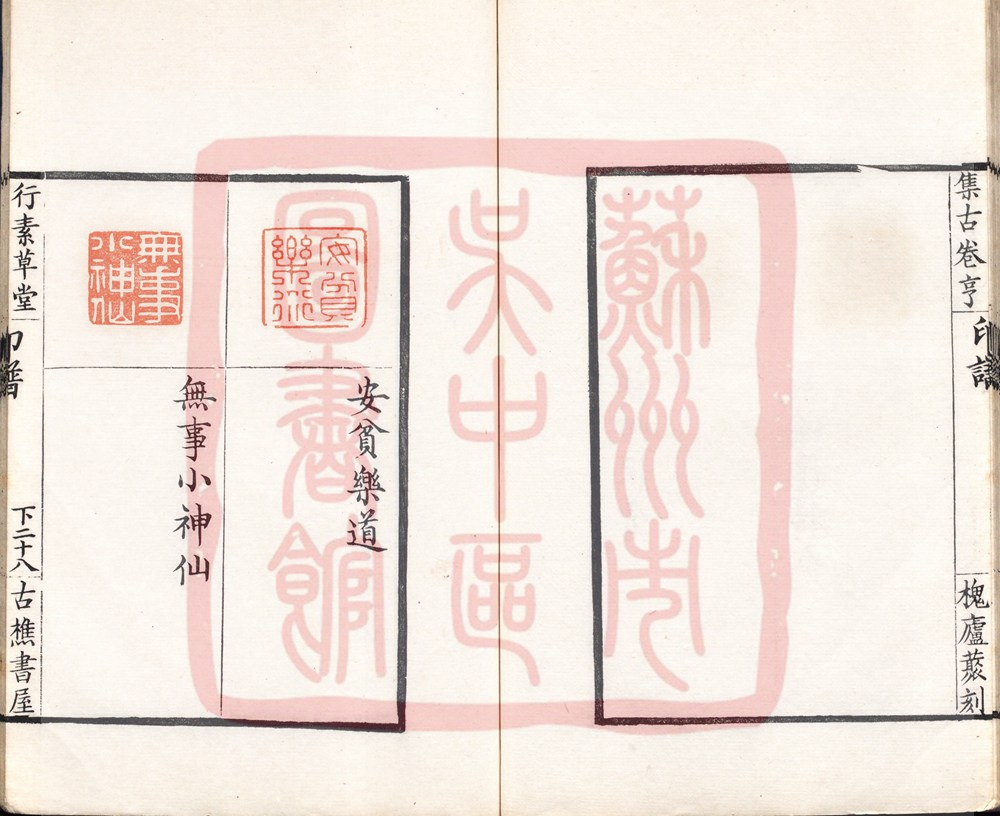 集古卷亨
印譜
槐廬叢刻
蘇州市
吴中區
圖書館
安貧樂道
安貧樂道
無事小神仙
無事小神仙
行素草堂
印譜
下二十八
古樵書屋